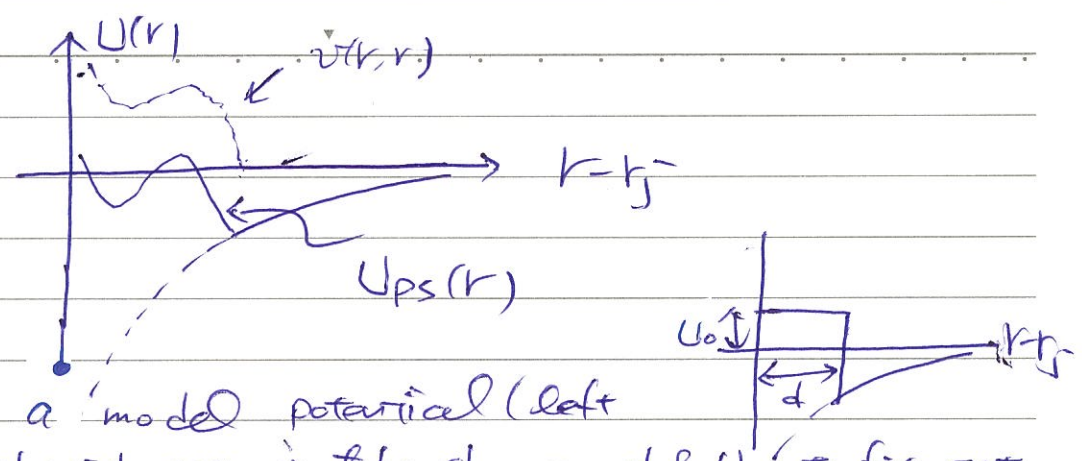 U(r)
v(r, r.)
r-rj
Ups(r)
U0
r-rj
d
a model potantical (left